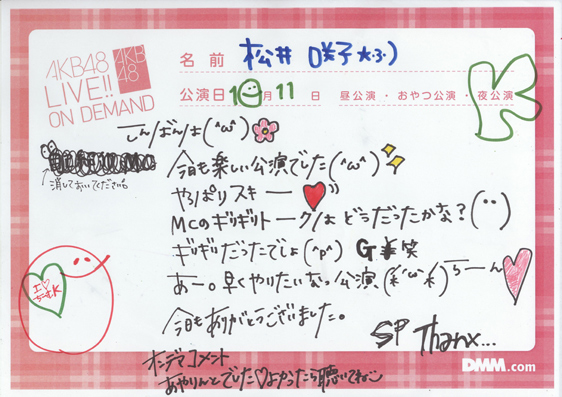 AKB48
LIVE!!
ON DEMAND
AKB
48
名前 松井 咲子★ふ)
公演日 10月11日 昼公演・おやつ公演・夜公演
こんばんは(^ω^)
↑消しておいてください
今日も楽しい公演でした(^ω^)
やっぱりスキー
MCのギリギリトークはどうだったかな?(··)
ギリギリだったでしょ(^p^) G￥笑
あー。早くやりたいなっ公演(*´ω`*)らーん
I♥
ちーむK
今日もありがとうございました。
SP Thanx...
オンデマコメント
あやりんとでした♡よかったら聴いてねっ
DMM.com